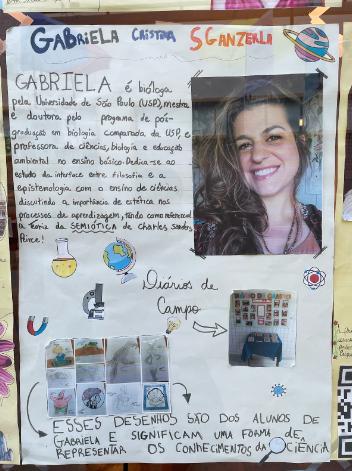 GABRIELA CRISTINA SGANZERLA
GABRIELA é bióloga
pela Universidade de São Paulo (USP), mestra
e doutora pelo programa de pós-
graduação em biologia comparada da USP, e
professora de ciências, biologia e educação
ambiental no ensino básico. Dedica-se ao
estudo da interface entre filosofia e a
epistemologia com o ensino de ciências
discutindo a importância da estética nos
processos de aprendizagem, tendo como referencial
a Teoria da SEMIÓTICA de Charles Sanders
Peirce!
Diários de
Campo
ESSES DESENHOS SÃO DOS ALUNOS DE
GABRIELA E SIGNIFICAM UMA FORMA DE
REPRESENTAR OS CONHECIMENTOS DA CIÊNCIA